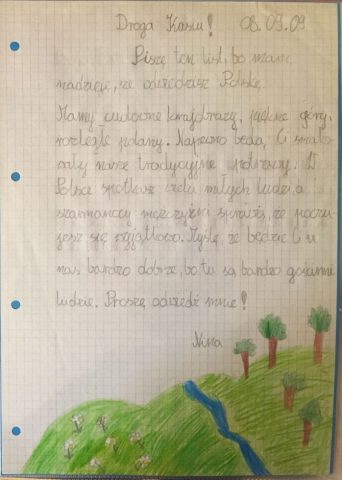 Droga Kasiu! 08.09.09
Piszę ten list, bo mam
nadzieję, że odwiedzisz Polskę.
Mamy cudowne krajobrazy, piękne góry,
rozległe polany. Napewno będą Ci smako-
wały nasze tradycyjne potrawy. W
Polsce spotkasz wielu miłych ludzi, a
szarmanccy mężczyźni sprawią, że poczu-
jesz się wyjątkowo. Myślę, że będzie Ci u
nas bardzo dobrze, bo tu są bardzo gościnni
ludzie. Proszę odwiedź mnie!
Nina